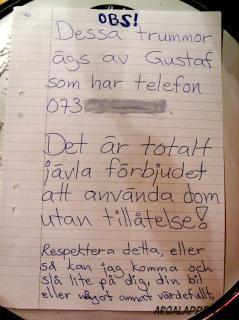 OBS!
Dessa trummor
ägs av Gustaf
som har telefon
073
Det är totalt
jävla förbjudet
att använda dom
utan tillåtelse!
Respektera detta, eller
så kan jag komma och
slå lite på dig, din bil
eller något annat värdefullt.
ARGALAPPEN